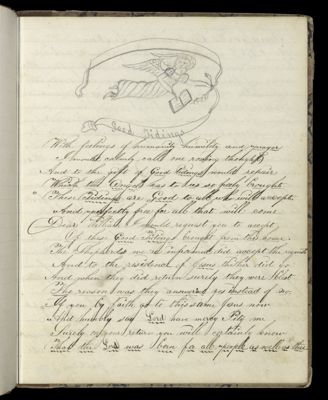 Good Tidings
With feelings of humanity humility and prayer
I would calmly call me roving thoughts
And to the gift of Good tidings would repair
Which the Angels has to us so freely brought
These Tidings are Good to all who will accept
And perfectly free for all that will come
Dear William I would request you to accept
Of these Good Tidings brought from the same
The Shepherds me is informed did accept the request
And to the residence of did go
And when they did return surely they were blest
The reason was they answered yes instead of no
If you by faith up to this stern Jesus now
And humbly say Lord have mercy & Pity me
Surely on your return you will certainly know
That the Lord was born for all people as well as thee